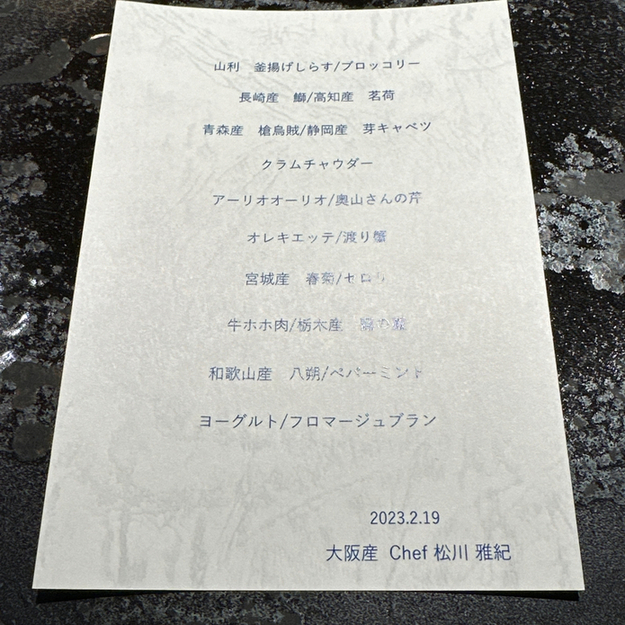 山利　釜揚げしらす/ブロッコリー
長崎産　鰤/高知産　茗荷
青森産　槍烏賊/静岡産　芽キャベツ
クラムチャウダー
アーリオオーリオ/奥山さんの芹
オレキエッテ/渡り蟹
宮城産　春菊/セロリ
牛ホホ肉/栃木産
和歌山産　八朔/ペパーミント
ヨーグルト/フロマージュブラン
2023.2.19
大阪産 Chef 松川 雅紀